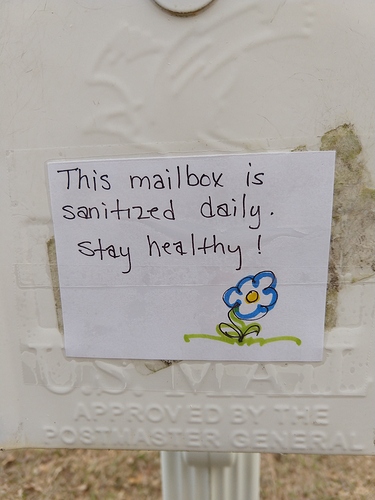 This mailbox is
sanitized daily.
stay healthy!
U.S. MAIL
APPROVED BY THE
POSTMASTER GENERAL